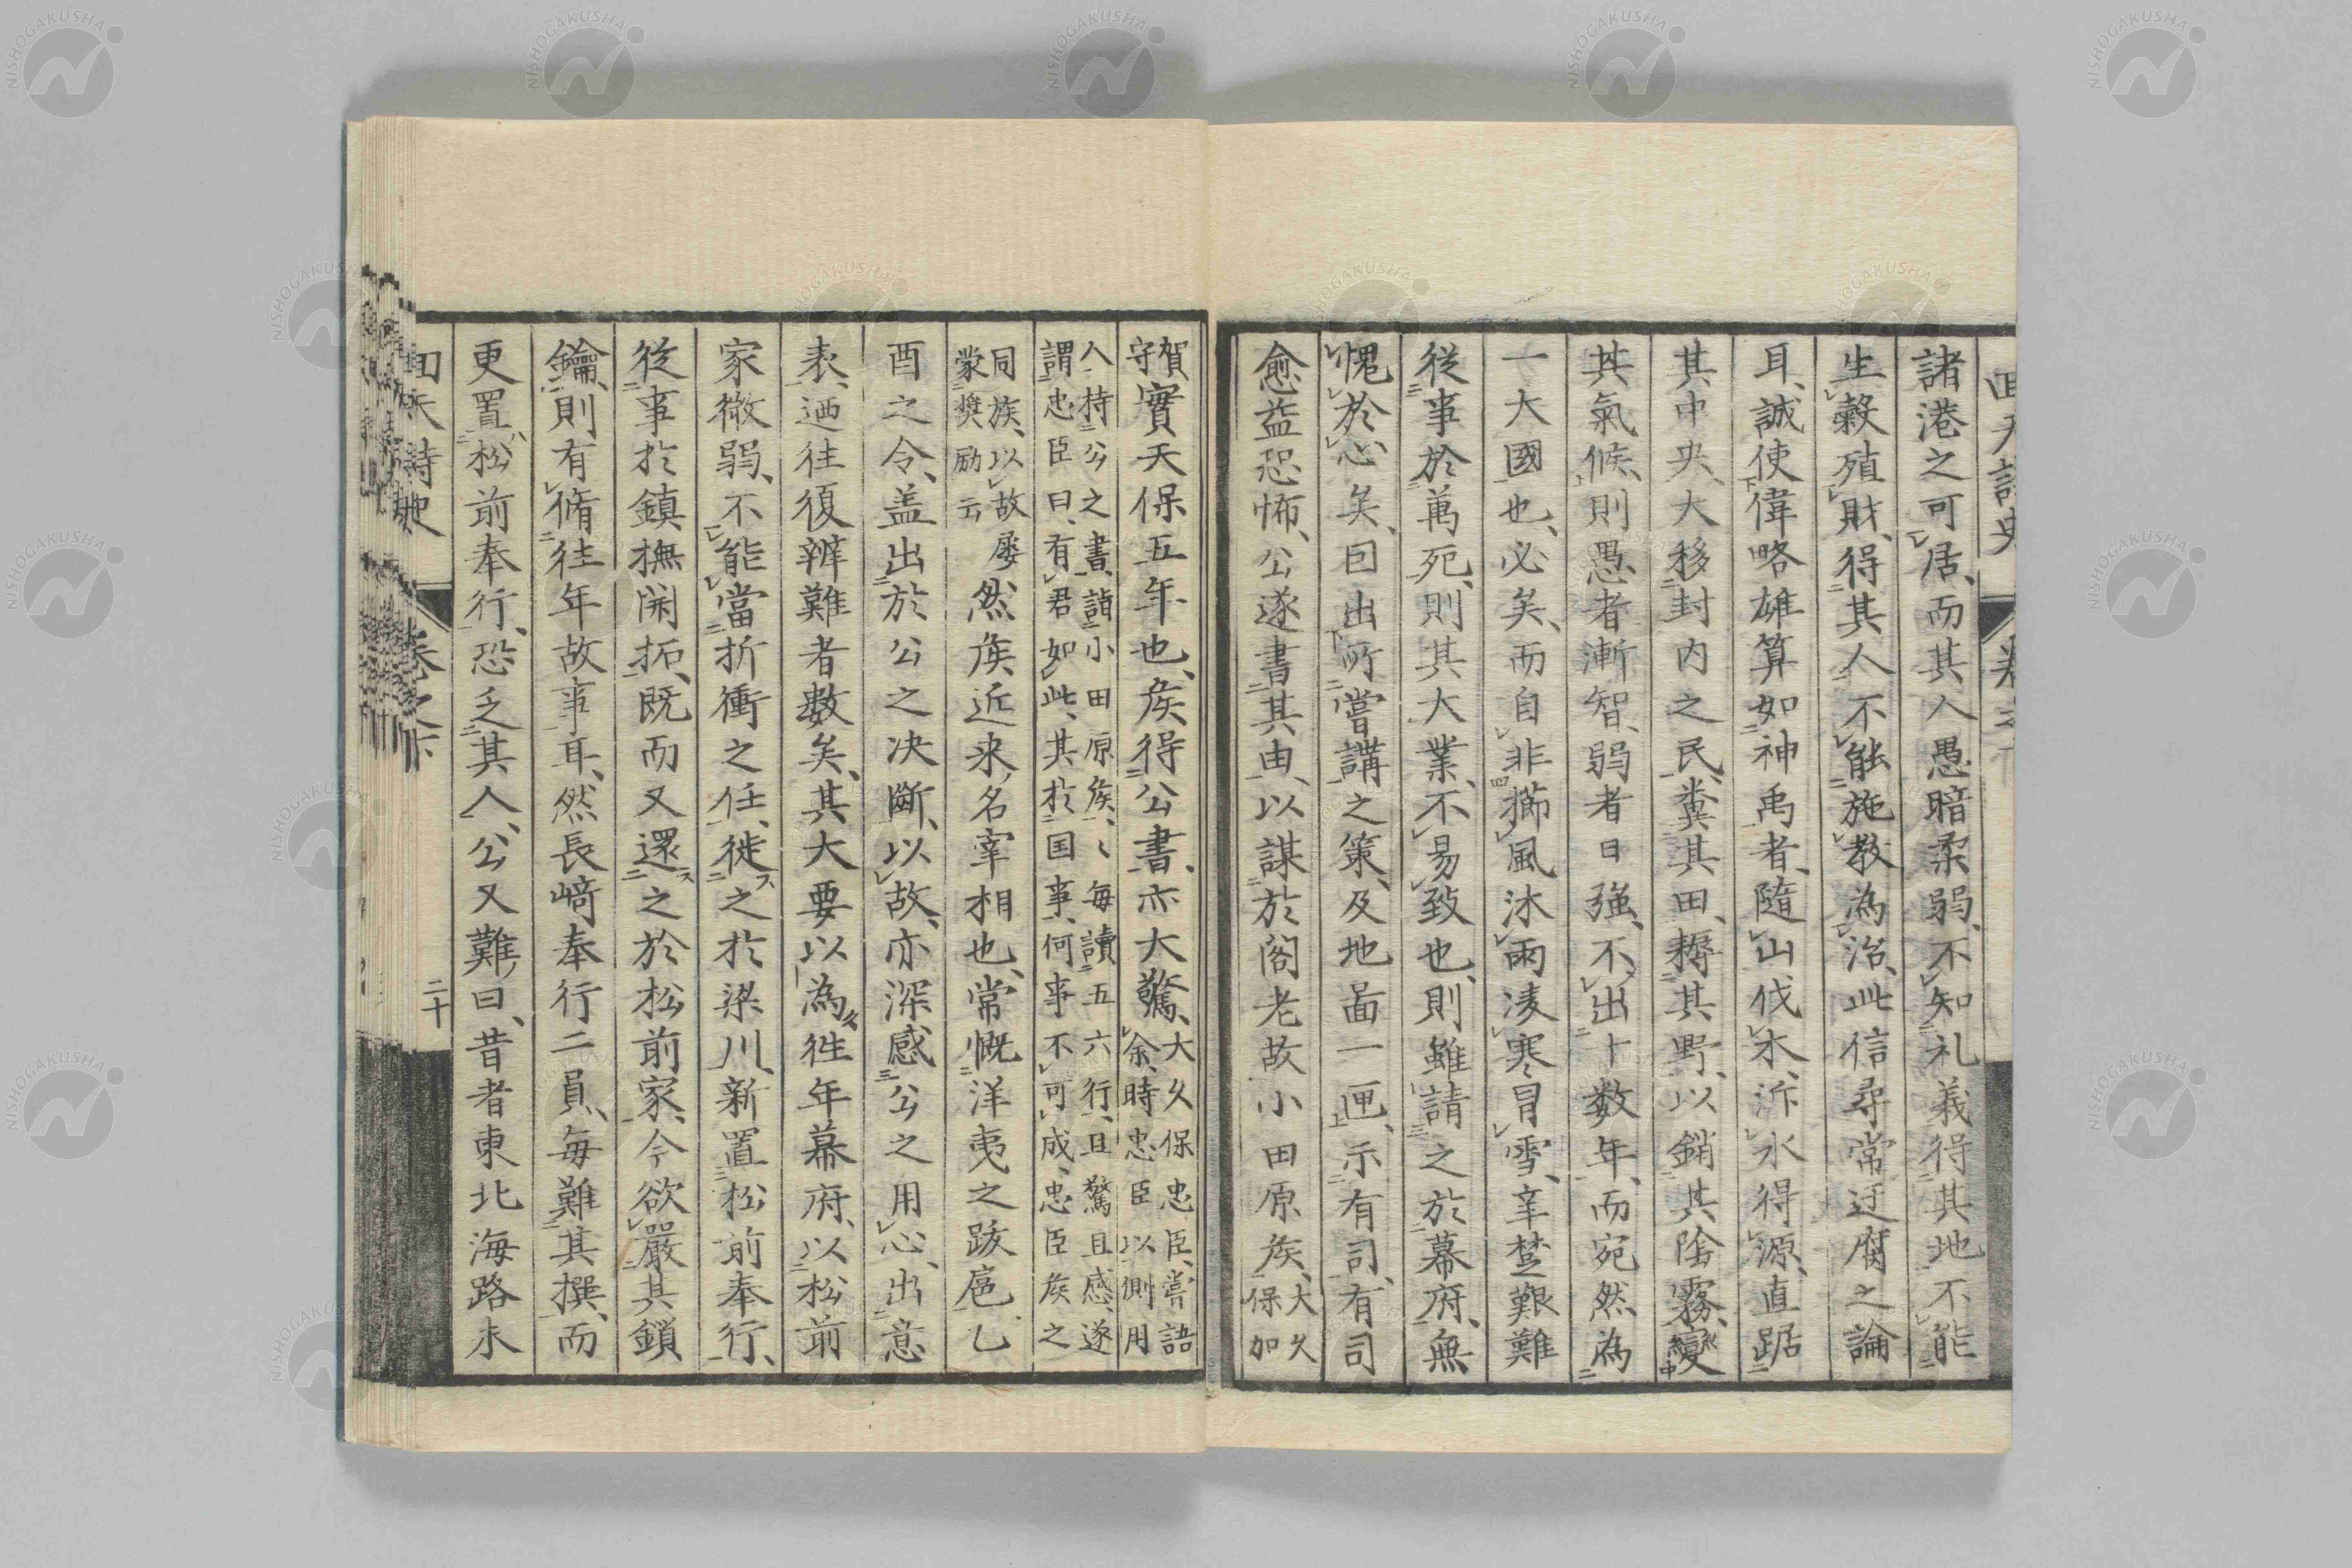 諸港之可居、而其人愚暗柔弱、不知礼義得其地不能
生穀殖財、得其人不能施教為治、此信尋常迂腐之論
耳、誠使偉略雄算如神禹者、隨山伐木、泝水得源、直踞
其中央、大移封内之民、糞其田、耨其野、以銷其陰霧、變
其氣候、則愚者漸智、弱者日強、不出十数年、而宛然為
一大國也、必矣、而自非櫛風沐雨凌寒冒雪、辛楚艱難
従事於萬死、則其大業、不易致也、則雖請之於幕府、無
愧於心矣、因出所嘗講之策、及地啚一匣、示有司、有司
愈益恐怖、公遂書其由、以謀於閣老故小田原矦、大久
保加
賀
守實天保五年也、矦得公書、亦大驚、大久保忠臣、嘗語
余、時忠臣以側用
人、持公之書、詣小田原矦、〻毎讀五六行、且驚且感、遂
謂忠臣曰、有君如此、其於国事、何事不可成、忠臣矦之
同族、以故屡
蒙奬励云然矦近来名宰相也、常慨洋夷之跋扈、乙
酉之令、盖出於公之决斷、以故、亦深感公之用心、出意
表、迺往復辨難者數矣、其大要以為往年幕府、以松前
家微弱、不能當折衝之任、徙之於梁川、新置松前奉行、
従事於鎮撫開拓、既而又還之於松前家、今欲嚴其鎖
鑰、則有脩往年故事耳、然長﨑奉行二員、毎難其撰、而
更置松前奉行、恐乏其人、公又難曰、昔者東北海路未
回天詩史
卷之下
二十